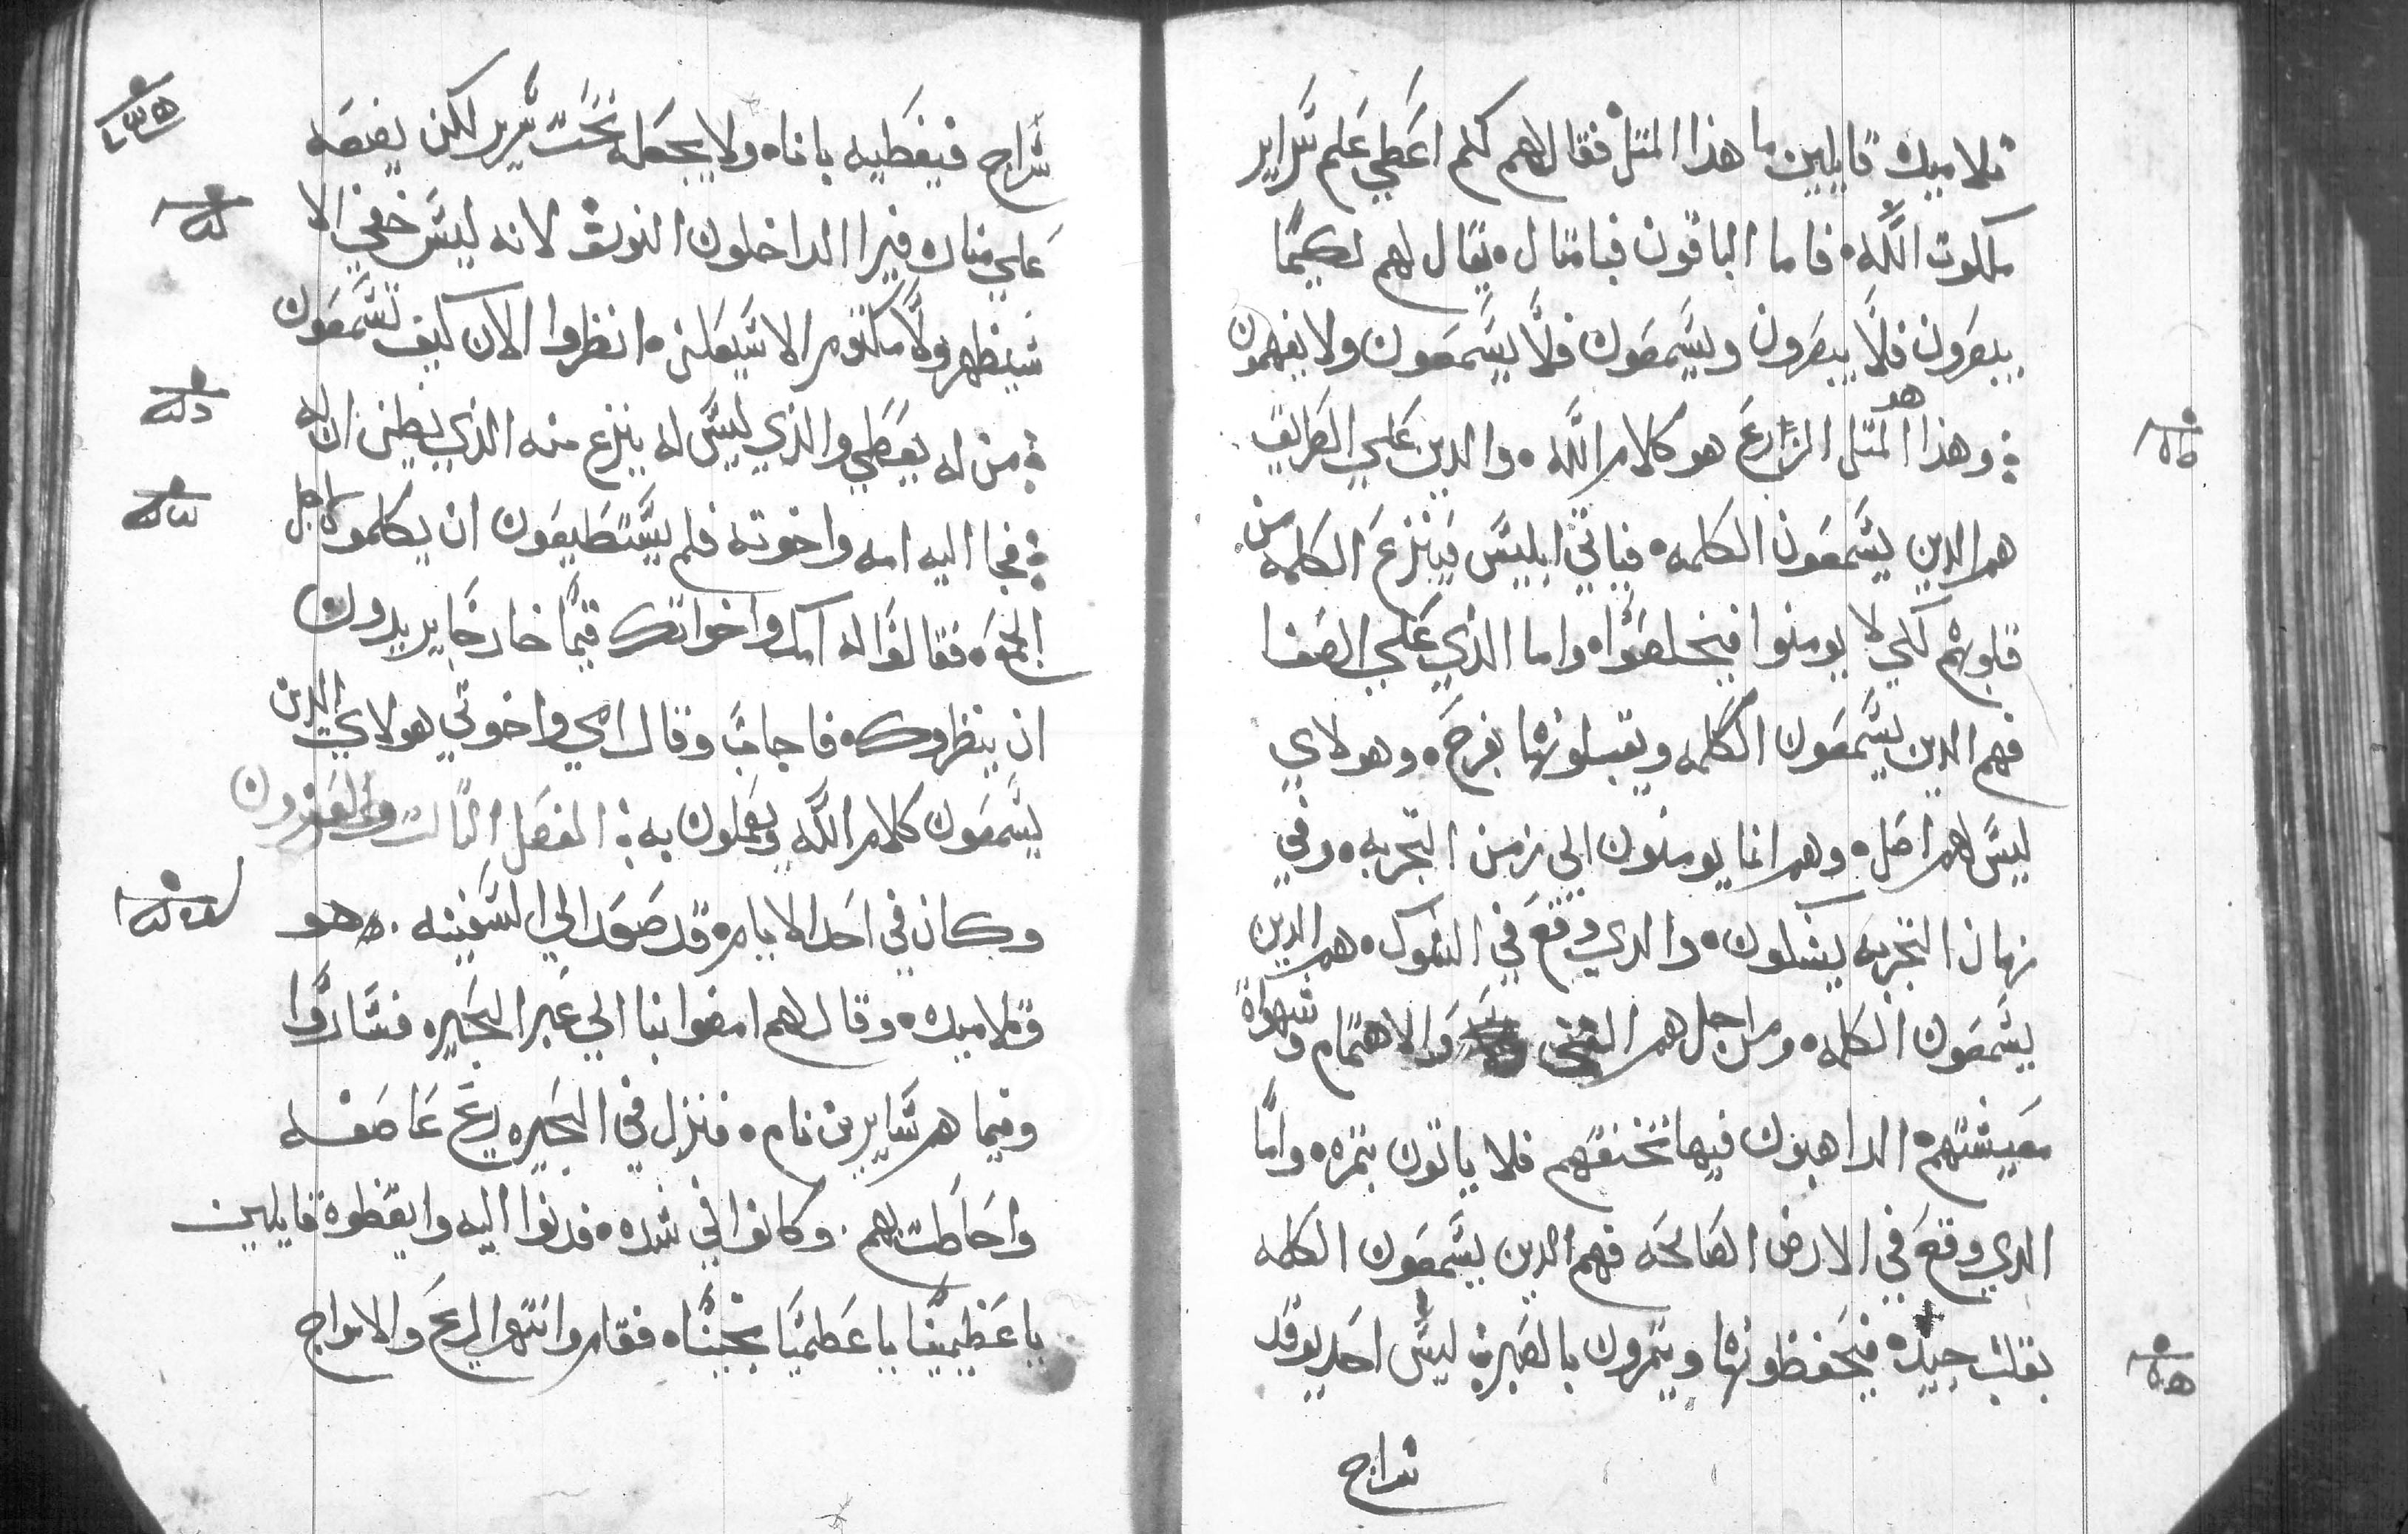 تلاميده قايلين ما هذا المتل فقال لهم لكم اعطي علم سراير
ملكوت الله فاما الباقون فبامتال يقال لهم لكيما
يبصرون فلا يبصرون ويسمعون فلا يسمعون ولا يفهمون
وهذا هو المتل الزارع هو كلام الله والدين علي الطريق
هم الدين يسمعون الكلمه فياتي ابليس فينزع الكلمه من
قلوبهم لكي لا يومنوا فيخلصوا واما الذي علي الصفا
فهم الدين يسمعون الكلمه ويقبلونها بفرح وهولاي
ليس لهم اصل وهم انما يومنون الي زمن التجربه وفي
زمان التجربه يشكون والدي وقع في الشوك هم الدين
يسمعون الكلمه ومن اجل هم الغني والاهتمام وشهواة
معيشتهم الداهبون فيها تخنقهم فلا ياتون بتمره واما
الدي وقع في الارض الصالحه فهم الدين يسمعون الكلمه
بقلب جيد فيحفظونها ويتمرون بالصبر ليس احد يوقد
سراج
سراج فيغطيه باناه ولا يجعله تحت سرير لكن يضعه
علي مناره فيرا الداخلون النور لانه ليس خفي الا
سيظهر ولا مكتوم الا سيعلن انظروا الان كيف تسمعون
من له يعطي والذي ليس له ينزع منه الذي يظن ان له
فجا اليه امه واخوته فلم يستطيعون ان يكلموه من اجل
الجمع فقالوا له امك واخواتك قيما خارجا يريدون
ان ينظروك فاجاب وقال امي واخوتي هولاي الدين
يسمعون كلام الله ويعملون به الفصل التالت والعشرون
وكان في احد الايام قد صعد الي السفينه هو
وتلاميده وقال لهم امضوا بنا الي عبر البحيره فساروا
وفيما هم سايرين نام فنزل في البحيره ريح عاصفه
واحاطت بهم وكانوا في شده فدنوا اليه وايقظوة قايلين
يا عظيمنا يا عظيمنا نجينا فقام وانتهر الريح والامواج